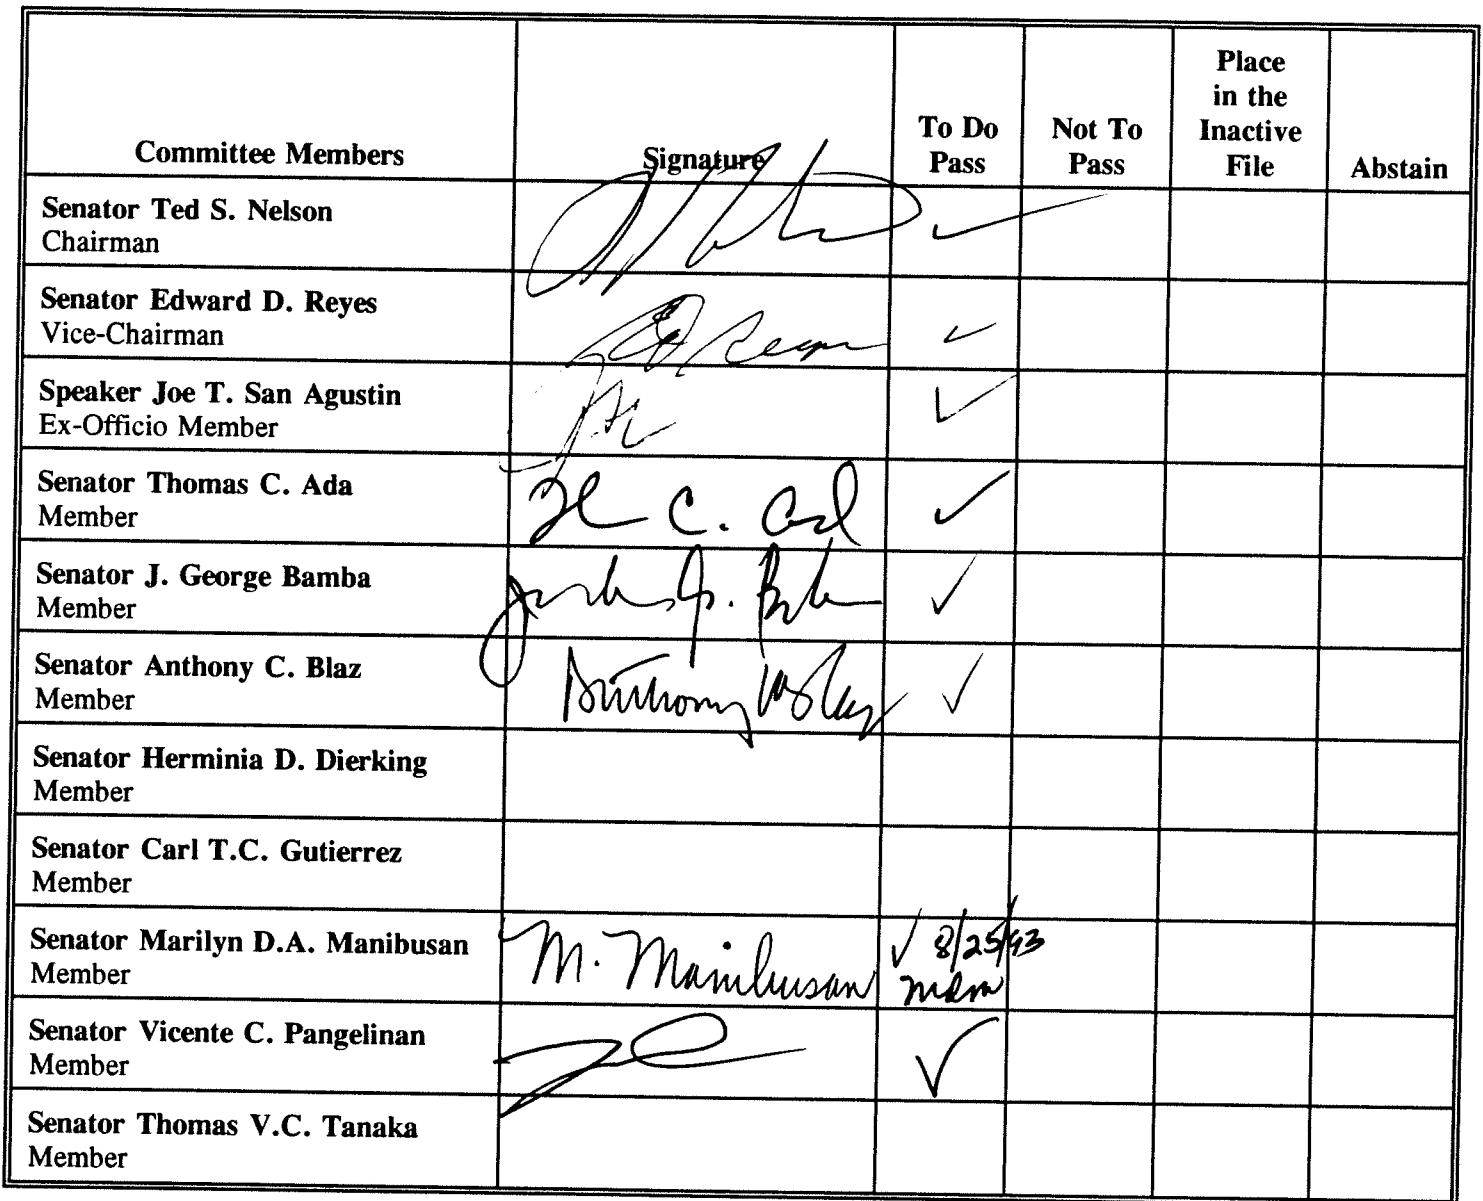 Committee Members
Signature
To Do
Pass
Not To
Pass
Place
in the
Inactive
File
Abstain
Senator Ted S. Nelson
Chairman
✓
Senator Edward D. Reyes
Vice-Chairman
✓
Speaker Joe T. San Agustin
Ex-Officio Member
✓
Senator Thomas C. Ada
Member
C. Ada
✓
Senator J. George Bamba
Member
✓
Senator Anthony C. Blaz
Member
Anthony Blaz
✓
Senator Herminia D. Dierking
Member
Senator Carl T.C. Gutierrez
Member
Senator Marilyn D.A. Manibusan
Member
M. Manibusan
✓ 8/25/93
mdm
Senator Vicente C. Pangelinan
Member
✓
Senator Thomas V.C. Tanaka
Member